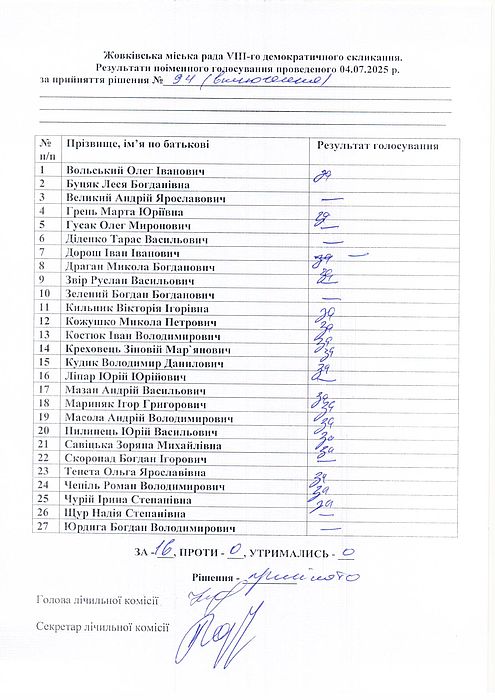 Жовківська міська рада VIII-го демократичного скликання.
Результати поіменного голосування проведеного 04.07.2025 р.
за прийняття рішення № 94 (виключення)
№ п/п Прізвище, ім’я по батькові Результат голосування
1 Вольський Олег Іванович за
2 Буцяк Леся Богданівна
3 Великий Андрій Ярославович —
4 Грень Марта Юріївна за
5 Гусак Олег Миронович —
6 Діденко Тарас Васильович —
7 Дорош Іван Іванович за —
8 Драган Микола Богданович за
9 Звір Руслан Васильович —
10 Зелений Богдан Богданович —
11 Кильник Вікторія Ігорівна за
12 Кожушко Микола Петрович за
13 Костюк Іван Володимирович за
14 Креховець Зіновій Мар`янович за
15 Кудик Володимир Данилович за
16 Ліпар Юрій Юрійович —
17 Мазан Андрій Васильович
18 Мариняк Ігор Григорович за
19 Масола Андрій Володимирович за
20 Пилипець Юрій Васильович за
21 Савіцька Зоряна Михайлівна за
22 Скоропад Богдан Ігорович —
23 Тенета Ольга Ярославівна за
24 Чепіль Роман Володимирович за
25 Чурій Ірина Степанівна за
26 Щур Надія Степанівна —
27 Юрдига Богдан Володимирович —
ЗА - 16, ПРОТИ - 0, УТРИМАЛИСЬ - 0
Рішення - прийнято
Голова лічильної комісії
Секретар лічильної комісії